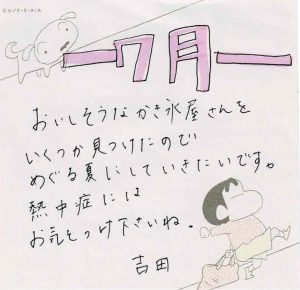 7月
おいしそうなかき氷屋さんを
いくつか見つけたので
めぐる夏にしていきたいです。
熱中症には
お気をつけ下さいね。
吉田